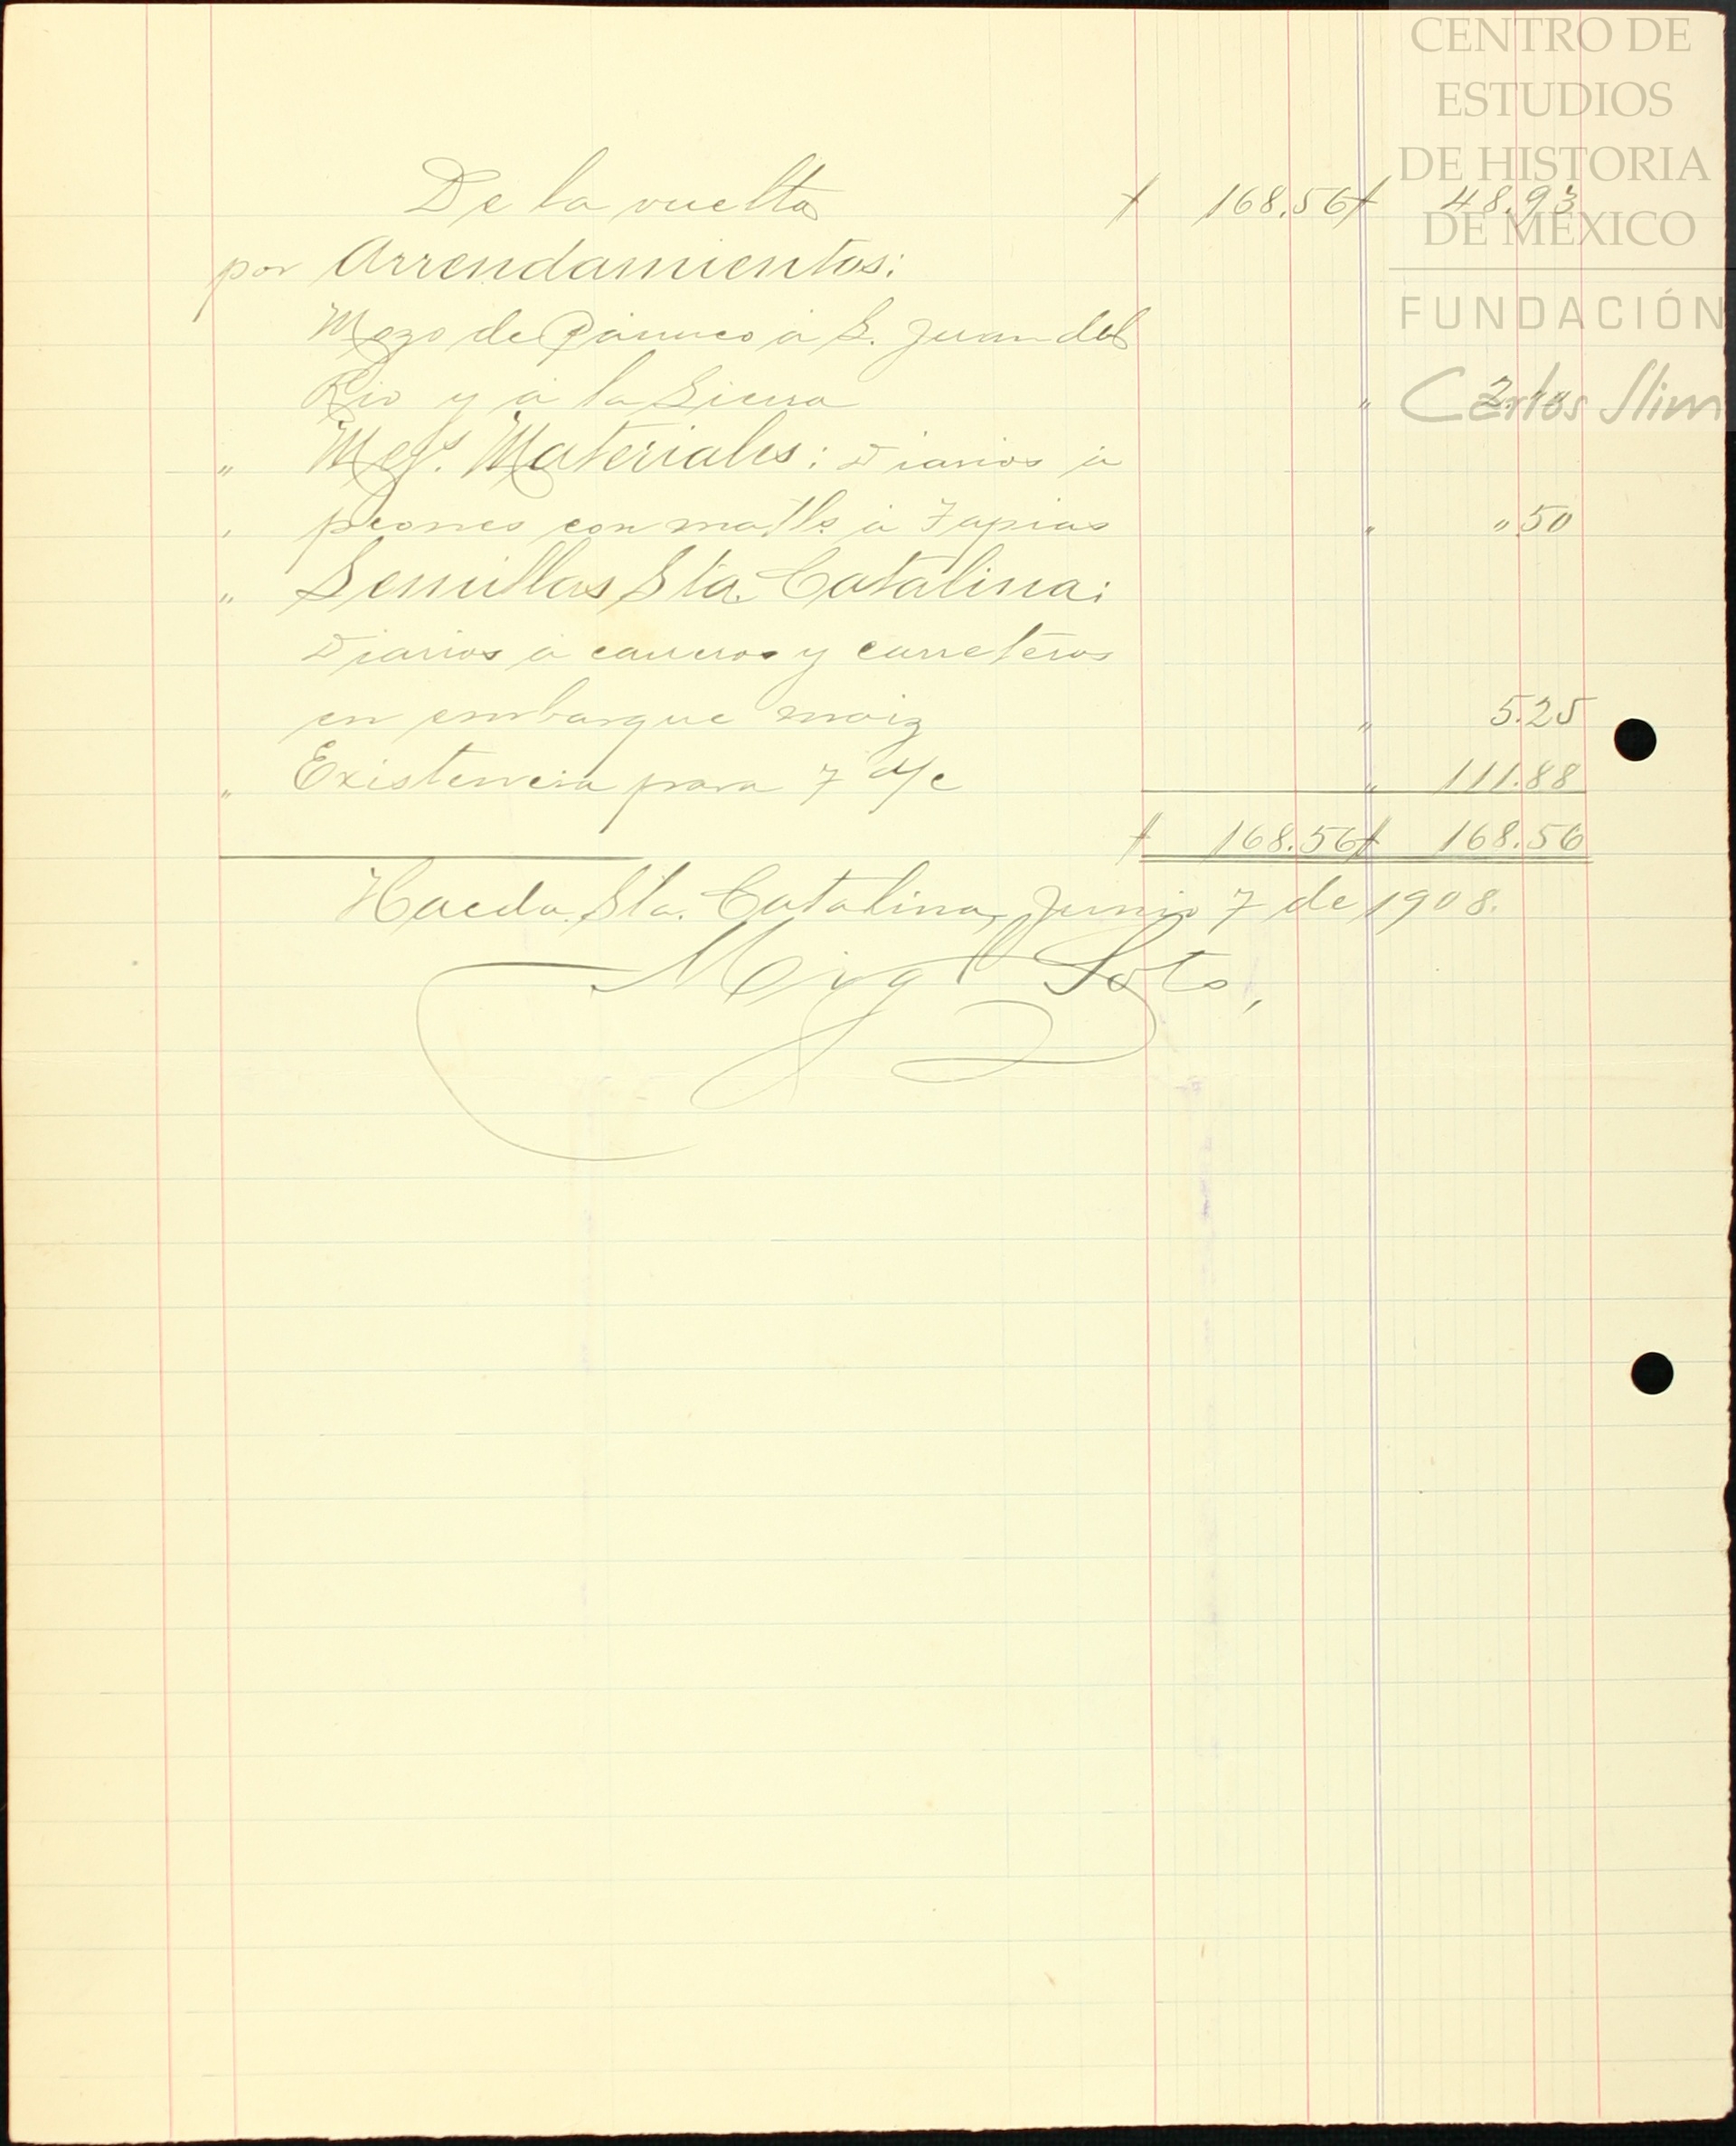 CENTRO DE
ESTUDIOS
DE HISTORIA
DE MÉXICO
FUNDACIÓN
Carlos Slim
De la vuelta $ 168.56 $ 48.93
por Arrendamientos:
Mozo de Pánuco á S. Juan del
Rio y á la Sierra " 2. "
" Mejs. Materiales: Diarios á
" peones con matls. á Tapias " " 50
" Semillas Sta. Catalina:
Diarios á carreros y carreteros
en embarque maiz " 5.25
" Existencia para 7 d/c " 111.88
$ 168.56 $ 168.56
Hacda. Sta. Catalina, Junio 7 de 1908.
Migl Soto,